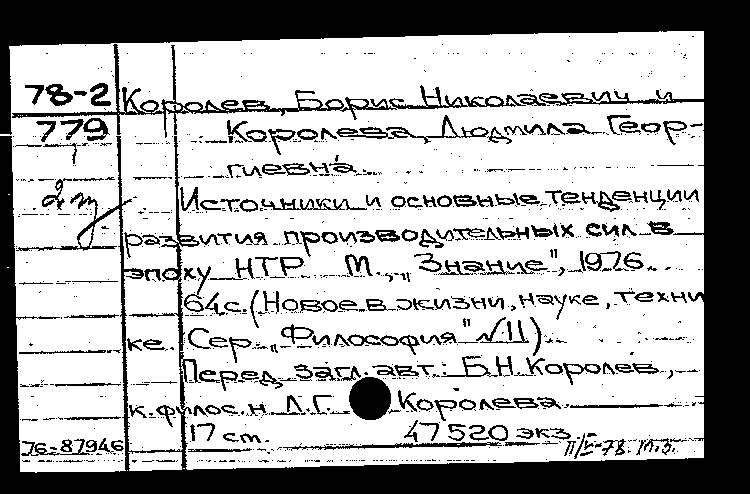 78-2 Королев, Борис Николаевич и
779 Королева, Людмила Геор-
гиевна.
Источники и основные тенденции
развития производительных сил в
эпоху НТР М., „Знание", 1976.
64с. (Новое в жизни, науке, техни
ке. Сер. „Философия" №11).
Перед загл. авт.: Б.Н. Королев,
к. филос. н Л.Г. Королева.
17 ст. 47520 экз.-
76-87946